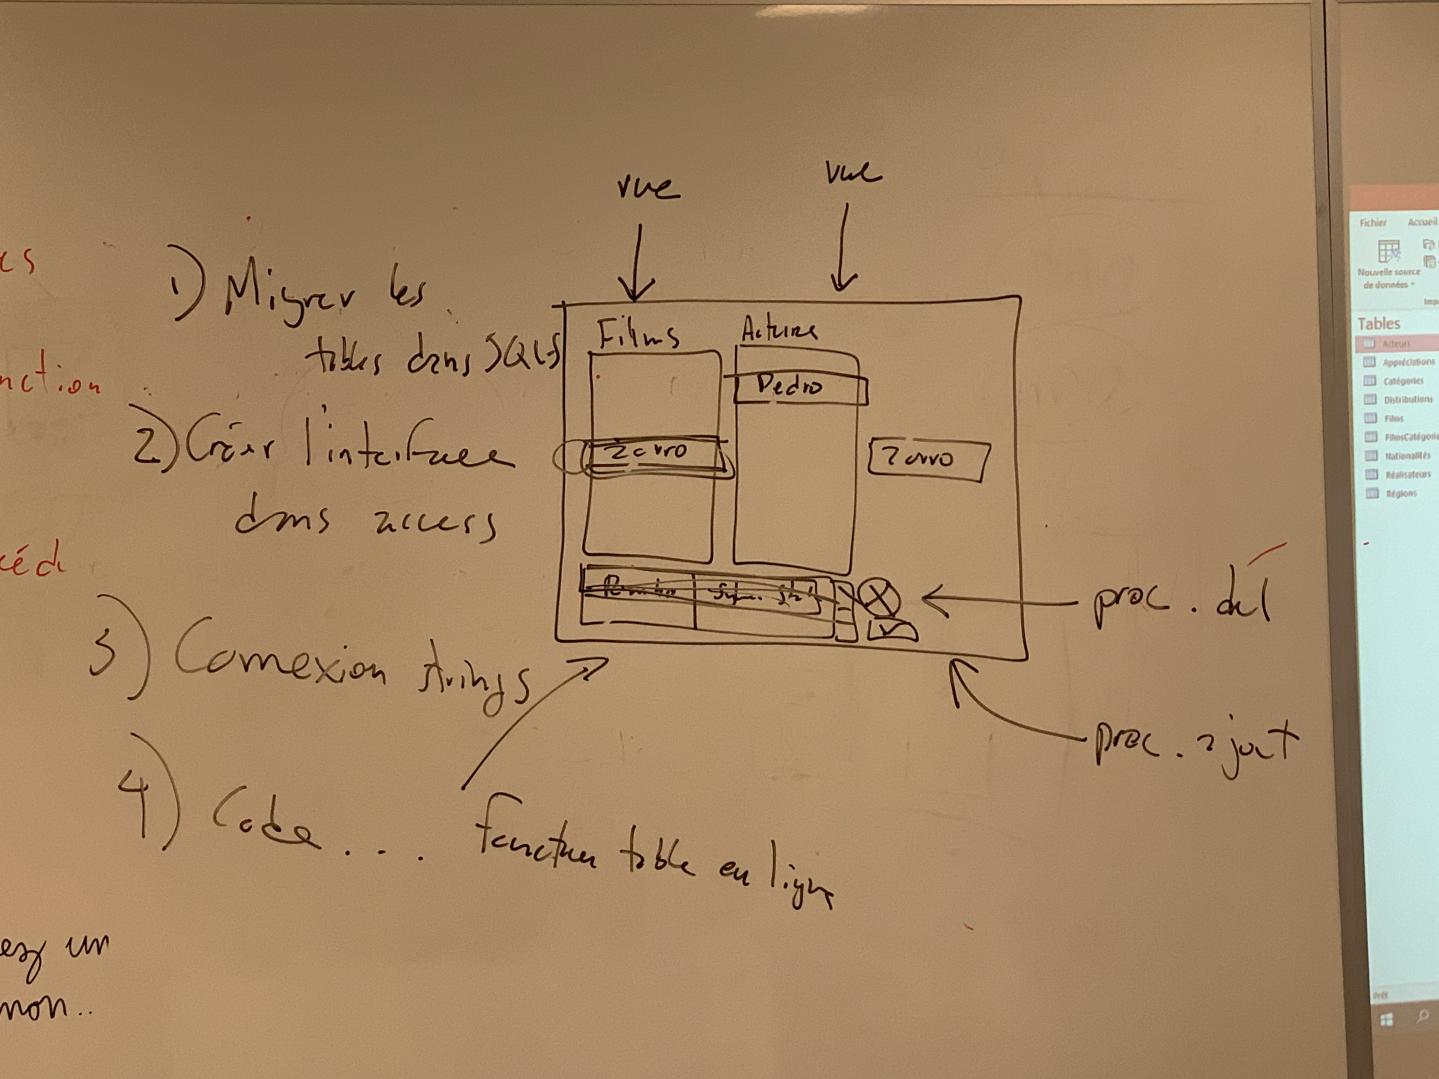 vue
vue
es
1) Migrer les
tables dans SQLS
nction
2) Créer l'interface
dans access
océd
3) Connexion strings
4) Code... fonction table en ligne
ez un
non..
Films
Acteurs
Pedro
Zorro
Zorro
proc. del
proc. ajout
Fichier Accueil
Nouvelle source
de données
Tables
Acteurs
Appréciations
Catégories
Distributions
Films
FilmsCatégorie
Nationalités
Réalisateurs
Régions
Prêt